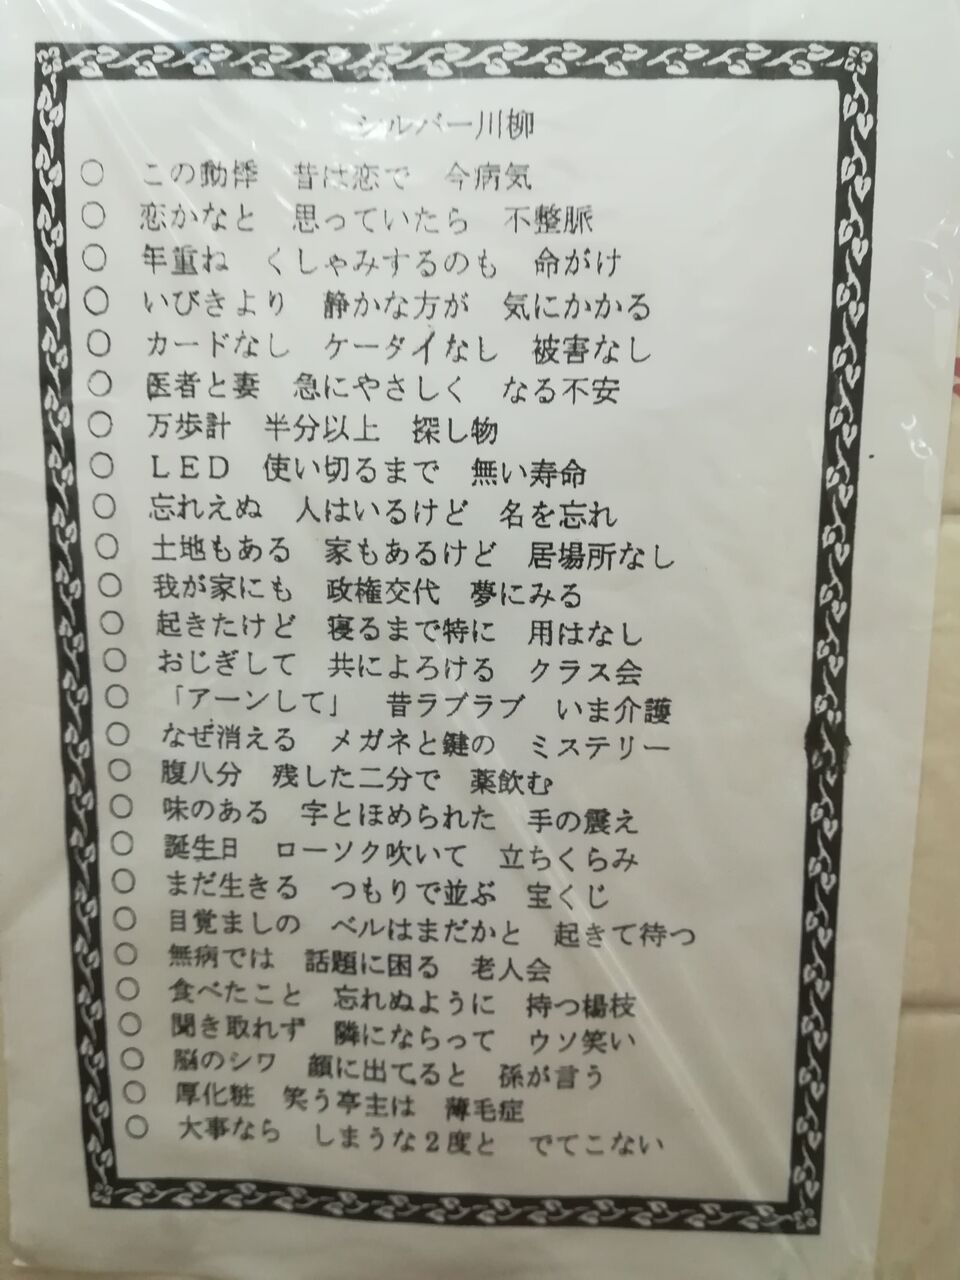 シルバー川柳
○　この動悸　昔は恋で　今病気
○　恋かなと　思っていたら　不整脈
○　年重ね　くしゃみするのも　命がけ
○　いびきより　静かな方が　気にかかる
○　カードなし　ケータイなし　被害なし
○　医者と妻　急にやさしく　なる不安
○　万歩計　半分以上　探し物
○　ＬＥＤ　使い切るまで　無い寿命
○　忘れえぬ　人はいるけど　名を忘れ
○　土地もある　家もあるけど　居場所なし
○　我が家にも　政権交代　夢にみる
○　起きたけど　寝るまで特に　用はなし
○　おじぎして　共によろける　クラス会
○　「アーンして」　昔ラブラブ　いま介護
○　なぜ消える　メガネと鍵の　ミステリー
○　腹八分　残した二分で　薬飲む
○　味のある　字とほめられた　手の震え
○　誕生日　ローソク吹いて　立ちくらみ
○　まだ生きる　つもりで並ぶ　宝くじ
○　目覚ましの　ベルはまだかと　起きて待つ
○　無病では　話題に困る　老人会
○　食べたこと　忘れぬように　持つ楊枝
○　聞き取れず　隣にならって　ウソ笑い
○　脳のシワ　顔に出てると　孫が言う
○　厚化粧　笑う亭主は　薄毛症
○　大事なら　しまうな２度と　でてこない